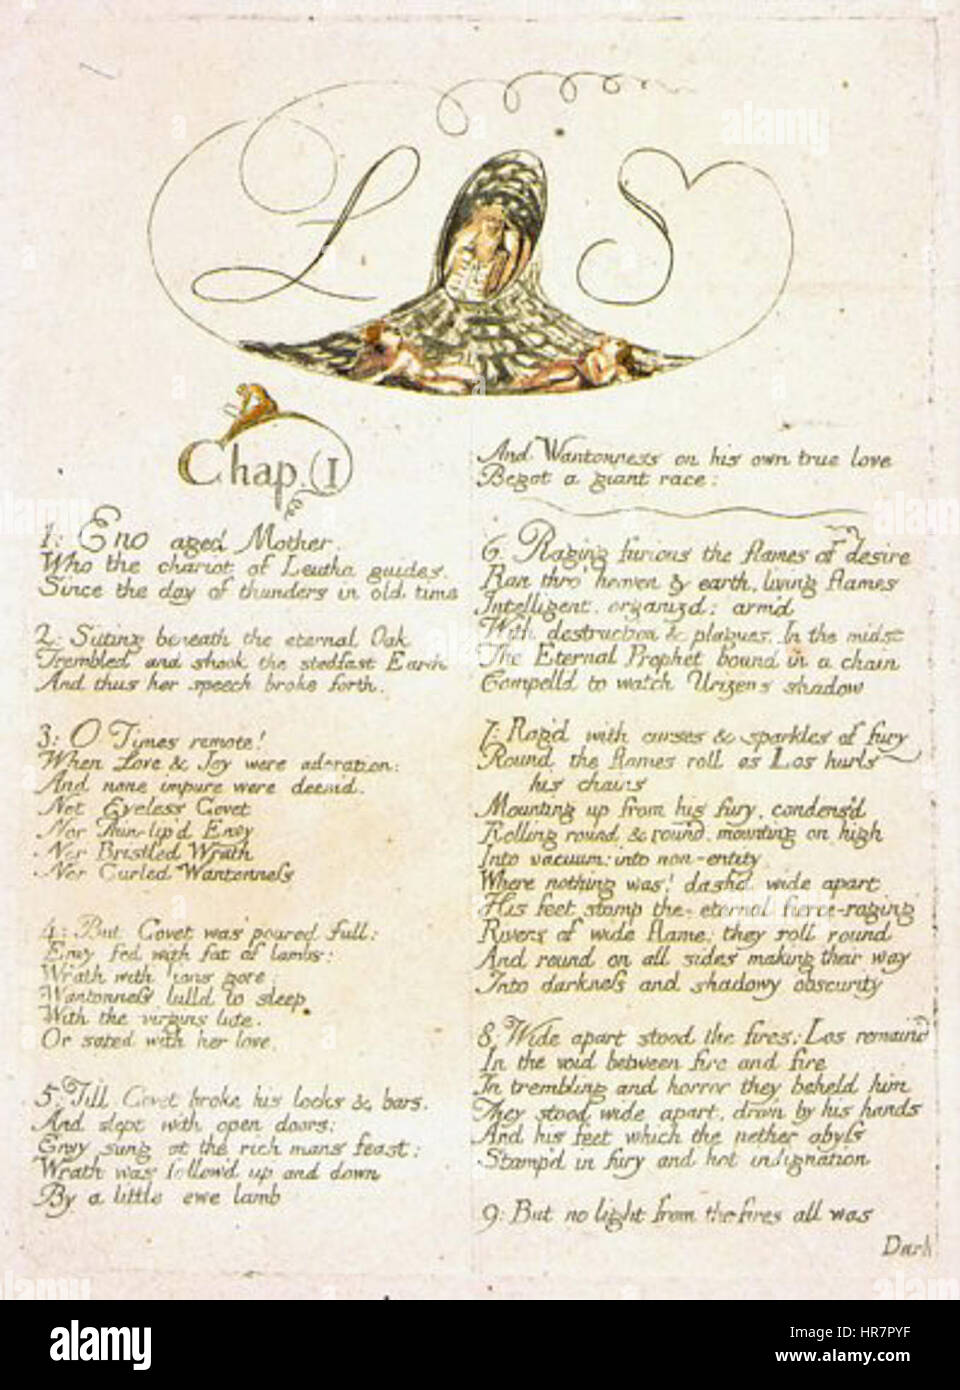 LOS
Chap. I
1: Eno aged Mother
Who the chariot of Leutha guides.
Since the day of thunders in old time
2: Sitting beneath the eternal Oak
Trembled and shook the stedfast Earth
And thus her speech broke forth.
3: O Times remote!
When Love & Joy were adoration:
And none impure were deem'd.
Not Eyeless Covet
Nor Thin-lip'd Envy
Nor Bristled Wrath
Nor Curled Wantonness
4: But Covet was poured full:
Envy fed with fat of lambs:
Wrath with lions gore:
Wantonness lulld to sleep
With the virgins lute.
Or sated with her love.
5: Till Covet broke his locks & bars.
And slept with open doors:
Envy sung at the rich mans feast:
Wrath was follow'd up and down
By a little ewe lamb
And Wantonness on his own true love
Begot a giant race:
6. Raging furious the flames of desire
Ran thro' heaven & earth, living flames
Intelligent, organizd: arm'd
With destruction & plagues. In the midst
The Eternal Prophet bound in a chain
Compelld to watch Urizens shadow
7: Rag'd with curses & sparkles of fury
Round the flames roll as Los hurls
his chains
Mounting up from his fury, condens'd
Rolling round & round, mounting on high
Into vacuum: into non-entity.
Where nothing was! dash'd wide apart
His feet stamp the eternal fierce-raging
Rivers of wide flame; they roll round
And round on all sides making their way
Into darkness and shadowy obscurity
8: Wide apart stood the fires: Los remain'd
In the void between fire and fire
In trembling and horror they beheld him
They stood wide apart, driv'n by his hands
And his feet which the nether abyss
Stamp'd in fury and hot indignation
9: But no light from the fires all was
Dark
alamy
Image ID: HR7PYF
www.alamy.com